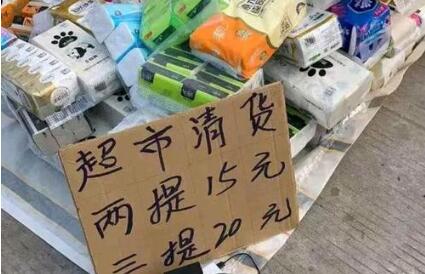 超市清货
两提15元
三提20元